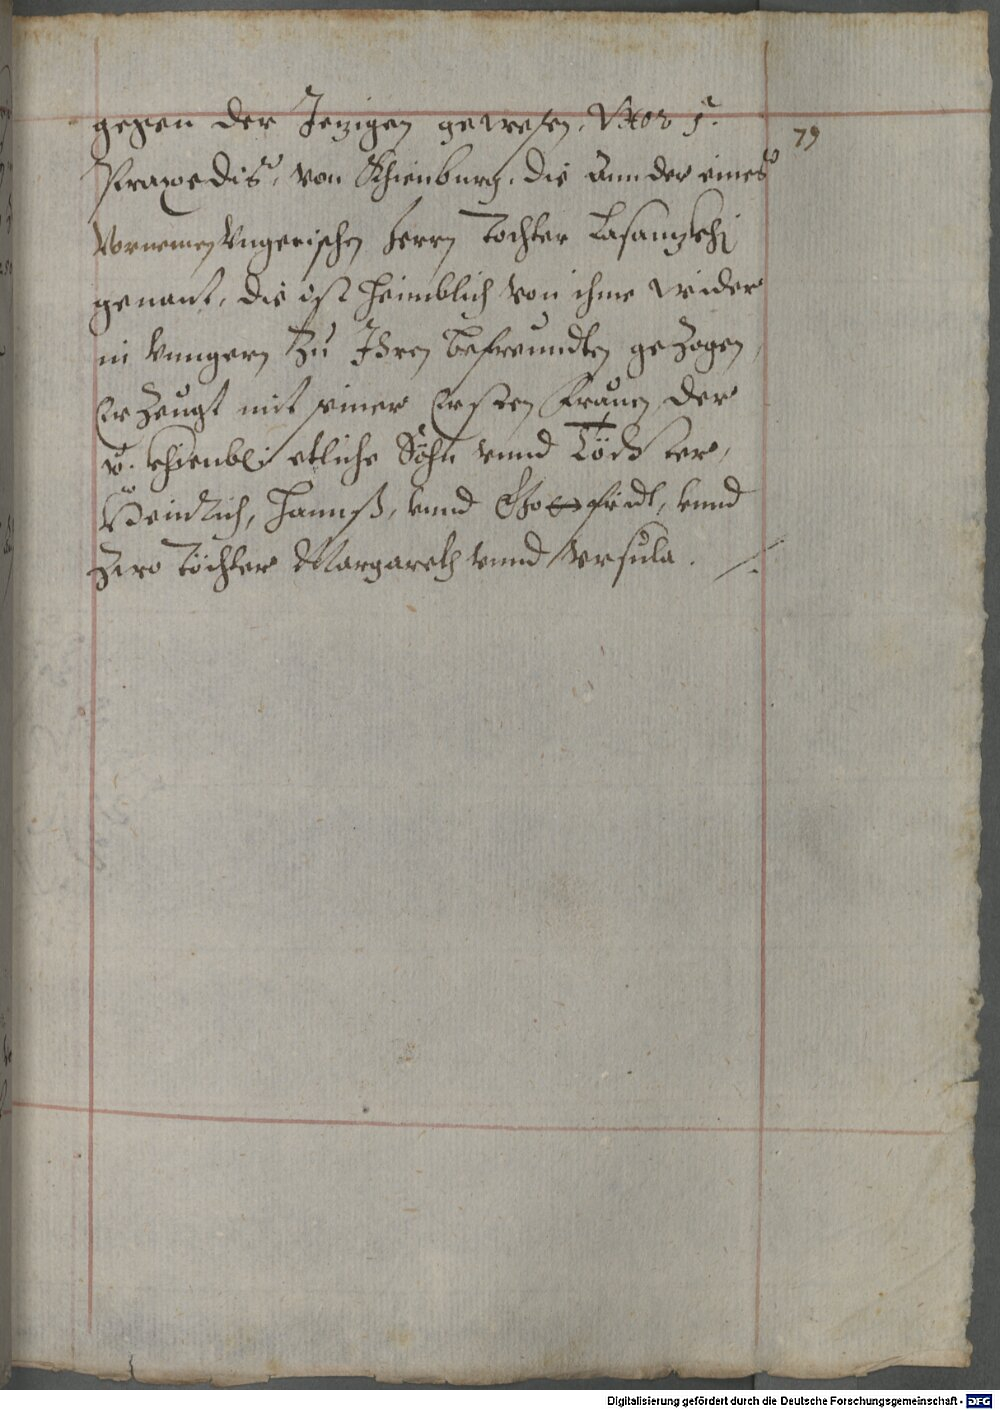 gegen der Jenigen gewesen. Vxor 1.
79
Praxedis, von Khienburg. die annder eines
Vornemen Vngerischen herrn Tochter
genant, die ist heimblich von ihme wider
in Vnngern zu Jhren befreundten gezogen,
Erzeugt mit seiner Ersten Frauen, der
v. etliche Söhn vnnd Töchter,
Heinrich, Hannß, vnnd Gottfridt, vnnd
zwo Töchter Margareth vnnd Vrsula.
Digitalisierung gefördert durch die Deutsche Forschungsgemeinschaft - DFG